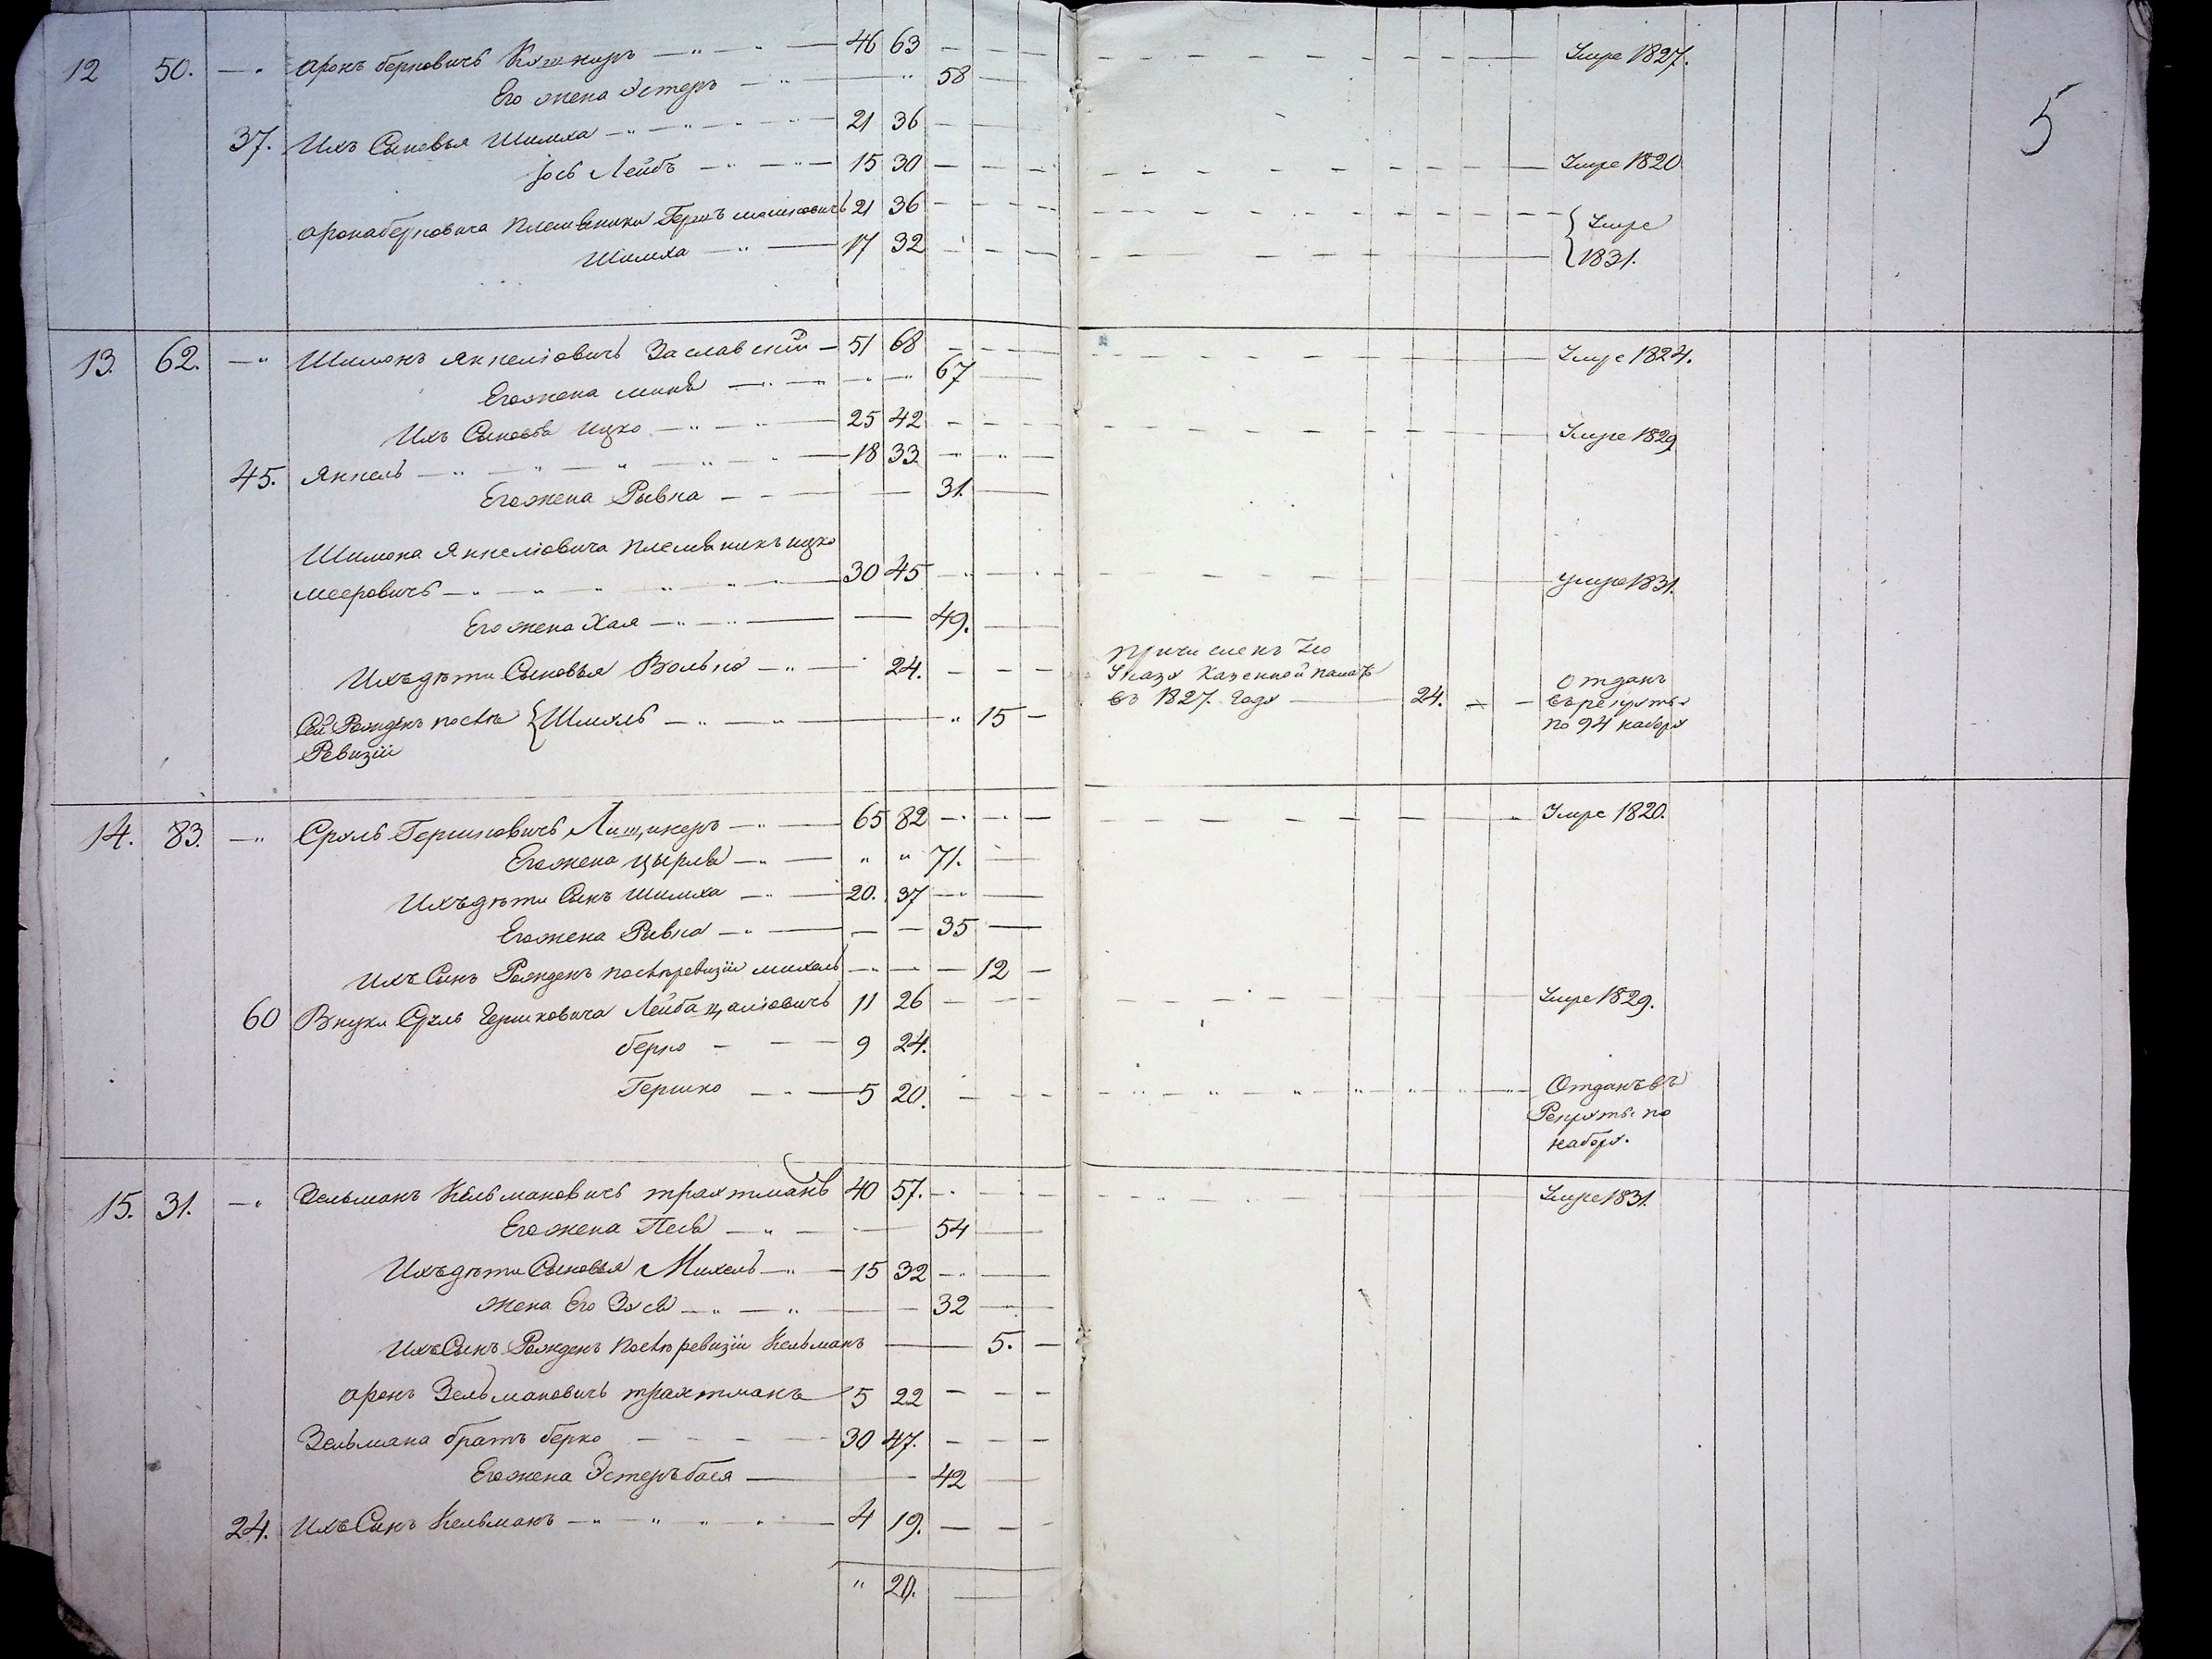 12 50. — Аронъ Берковичъ Кушниръ — 46 63 — Умре 1827.
5
Его жена Эстеръ — 58
37. Ихъ Сыновья Шимха — 21 36
Іось Лейбъ — 15 30 — Умре 1820
Арона Берковича Племяники Гершъ Мошковичъ 21 36 — Умре
Шимха — 17 32 — 1831.
13. 62. — Шимонъ Янкеліовичъ Заславскій — 51 68 — Умре 1824.
Его жена Миня — 67
Ихъ Сыновья Ицко — 25 42 — Умре 1829
45. Янкель — 18 33
Его жена Рывка — 31.
Шимона Янкеліовича Племяникъ Ицко
Мееровичъ — 30 45 — умре 1831.
Его жена Хая — 49.
Ихъ дѣти Сыновья Волько — 24. — Причисленъ По
Указу Казенной Палаты
въ 1827. Году — 24. — Отданъ
въ рекруты
по 94 набору
Сей Рожденъ послѣ {Шмуль — 15
Ревизіи
14. 83. — Сруль Гершковичъ Лищинеръ — 65 82 — Умре 1820.
Его жена Цырля — 71.
Ихъ дѣти Сынъ Шимха — 20. 37
Его жена Рывка — 35
Ихъ Сынъ Рожденъ послѣ ревизіи Михель — 12
60 Внуки Сруль Гершковича Лейба Цаліовичъ 11 26 — Умре 1829.
Берко — 9 24.
Гершко — 5 20. — Отданъ въ
Рекруты по
набору.
15. 31. — Зельманъ Кельмановичъ Трахтманъ 40 57. — Умре 1831.
Его жена Песя — 54
Ихъ дѣти Сыновья Михель — 15 32
жена Его Зуся — 32
Ихъ Сынъ Рожденъ послѣ ревизіи Кельманъ — 5.
Аронъ Зельмановичъ Трахтманъ 5 22
Зельмана братъ Берко — 30 47.
Его жена Эстеръ Бася — 42
24. Ихъ Сынъ Кельманъ — 4 19.
" 20.